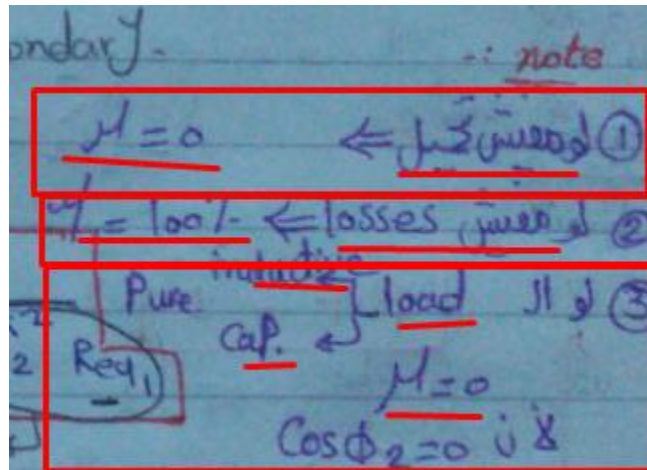 ondary.
note :-
① لو مفيش حمل ⇐ μ = 0
② لو مفيش losses ⇐ μ = 100%
③ لو ال load Pure inductive
Cap.
μ = 0
لأن Cosϕ₂ = 0
Req₁